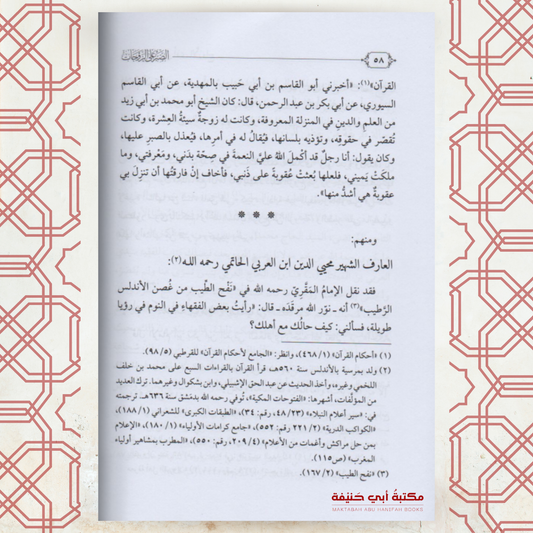 ٥٨
الصبر على الزوجات
القرآن»(١): «أخبرني أبو القاسم بن أبي حَبيب بالمهدية، عن أبي القاسم
السيوري، عن أبي بكر بن عبد الرحمن، قال: كان الشيخ أبو محمد بن أبي زيد
من العلم والدين في المنزلة المعروفة، وكانت له زوجةٌ سيئةُ العِشرة، وكانت
تُقصّر في حقوقِه، وتؤذيه بلسانها، فيُقالُ له في أمرِها، فيُعذل بالصبرِ عليها،
وكان يقول: أنا رجلٌ قد أكملَ اللهُ عليَّ النعمةَ في صِحّة بدني، ومَعرفتي، وما
ملكَتْ يَميني، فلعلها بُعثت عُقوبةً على ذَنبي، فأخاف إنْ فارقتُها أن تنزِلَ بي
عقوبةٌ هي أشدُّ منها».
ومنهم:
العارف الشهير محيي الدين ابن العربي الحاتمي رحمه الله(٢):
فقد نقل الإمامُ المَقَّريّ رحمه الله في «نَفْح الطِّيب من غُصن الأندلس
الرَّطيب»(٣) أنه ـ نوّر الله مرقدَه ـ قال: «رأيتُ بعض الفقهاءِ في النوم في رؤيا
طويلة، فسألني: كيف حالُك مع أهلك؟
(١) «أحكام القرآن» (١/ ٤٦٨)، وانظر: «الجامع لأحكام القرآن» للقرطبي (٥/ ٩٨).
(٢) ولد بمرسية بالأندلس سنة ٥٦٠هـ، قرأ القرآن بالقراءات السبع على محمد بن خلف
اللخمي وغيره، وأخذ الحديث عن عبد الحق الإشبيلي، وابن بشكوال وغيرهما. ترك العديد
من المؤلَّفات، أشهرها: «الفتوحات المكية»، تُوفي رحمه الله بدمشق سنة ٦٣٦هـ. ترجمته
في: «سير أعلام النبلاء» (٢٣/ ٤٨، رقم: ٣٤)، «الطبقات الكبرى» للشعراني (١/ ١٨٨)،
«الكواكب الدرية» (٢/ ٢٢١ رقم: ٥٥٢)، «جامع كرامات الأولياء» (١/ ١٨٠)، «الإعلام
بمن حل مراكش وأغمات من الأعلام» (٤/ ٢٠٩، رقم: ٥٥٠)، «المطرب بمشاهير أولياء
المغرب» (ص١١٥).
(٣) «نفح الطيب» (٢/ ١٦٧).
مكتبة أبي حنيفة
MAKTABAH ABU HANIFAH BOOKS